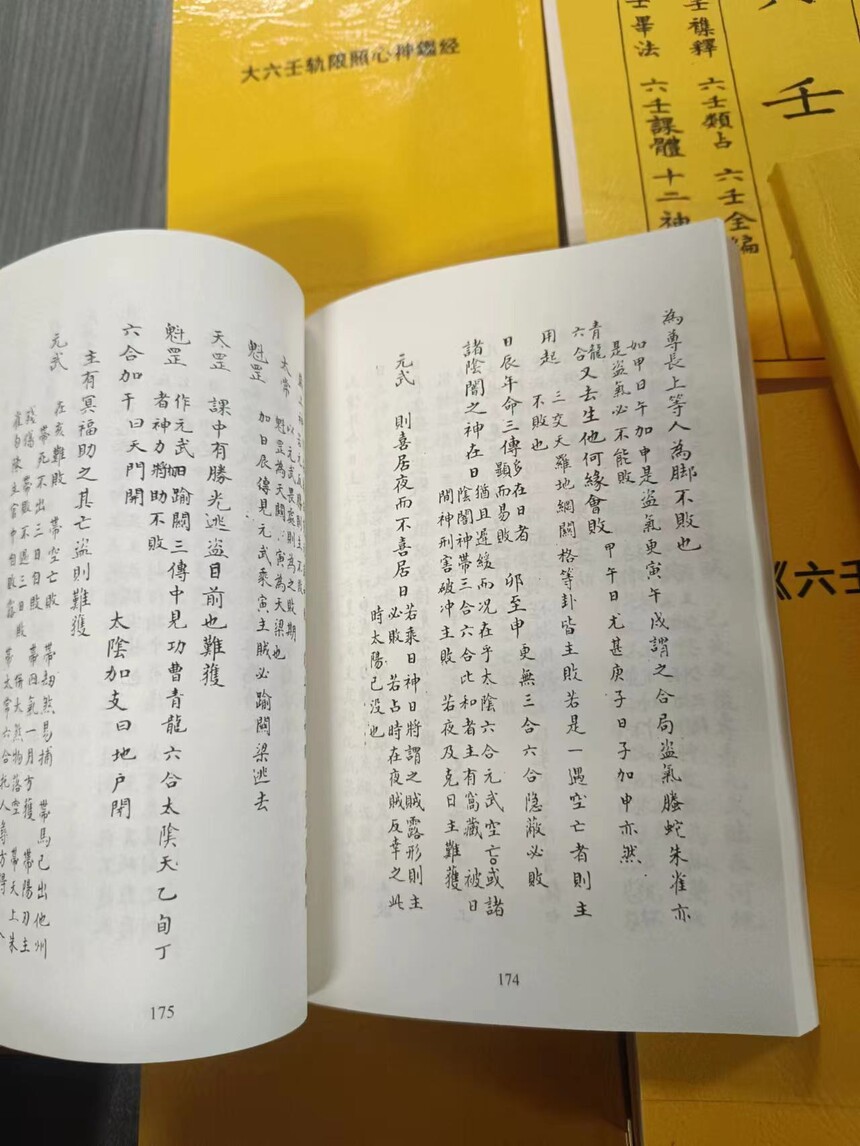 大六壬轨限照心神鑑经
壬畢法
六壬課體
十二神
壬襍釋
六壬類占
六壬全編
壬
《六壬
為尊長上等人為脚不敗也
如甲日午加申是盜氣更寅午戌謂之合局盜氣螣蛇朱雀亦
是盜氣必不能敗
甲午日尤甚庚子日子加申亦然
青龍
六合又去生他何緣會敗
用起
三交天羅地網關格等卦皆主敗若是一遇空亡者則主
不敗也
日辰年命三傳多在日者
顯而易敗
卯至申
更無三合六合隐蔽必敗
諸陰闇之神在日
猶且遲緩而况在乎太陰六合元武空亡或諸
陰闇神帶三合六合比和者主有窩藏
被日
間神刑害破冲主敗
若夜及克日主難獲
元武
則喜居夜而不喜居日
若乘日神日將謂之賊露形則主
必敗
若占時在夜賊反幸之此
時太陽已没也
174
太常
以元武畏處則為之敗期
魁罡為天關
寅為天梁也
魁罡
加日辰傳見元武乘寅主賊必踰關梁逃去
天罡
課中有勝光逃盜目前也難獲
魁罡
作元武
踰關三傳中見功曹青龍六合太陰天乙旬丁
者神力將助不敗
六合加干曰天門開
太陰加支曰地户閉
主有冥福助之其亡盜則難獲
元武
在亥難敗
帶空亡敗
帶劫煞易捕
帶馬已出他州
帶死不出三日自敗
175